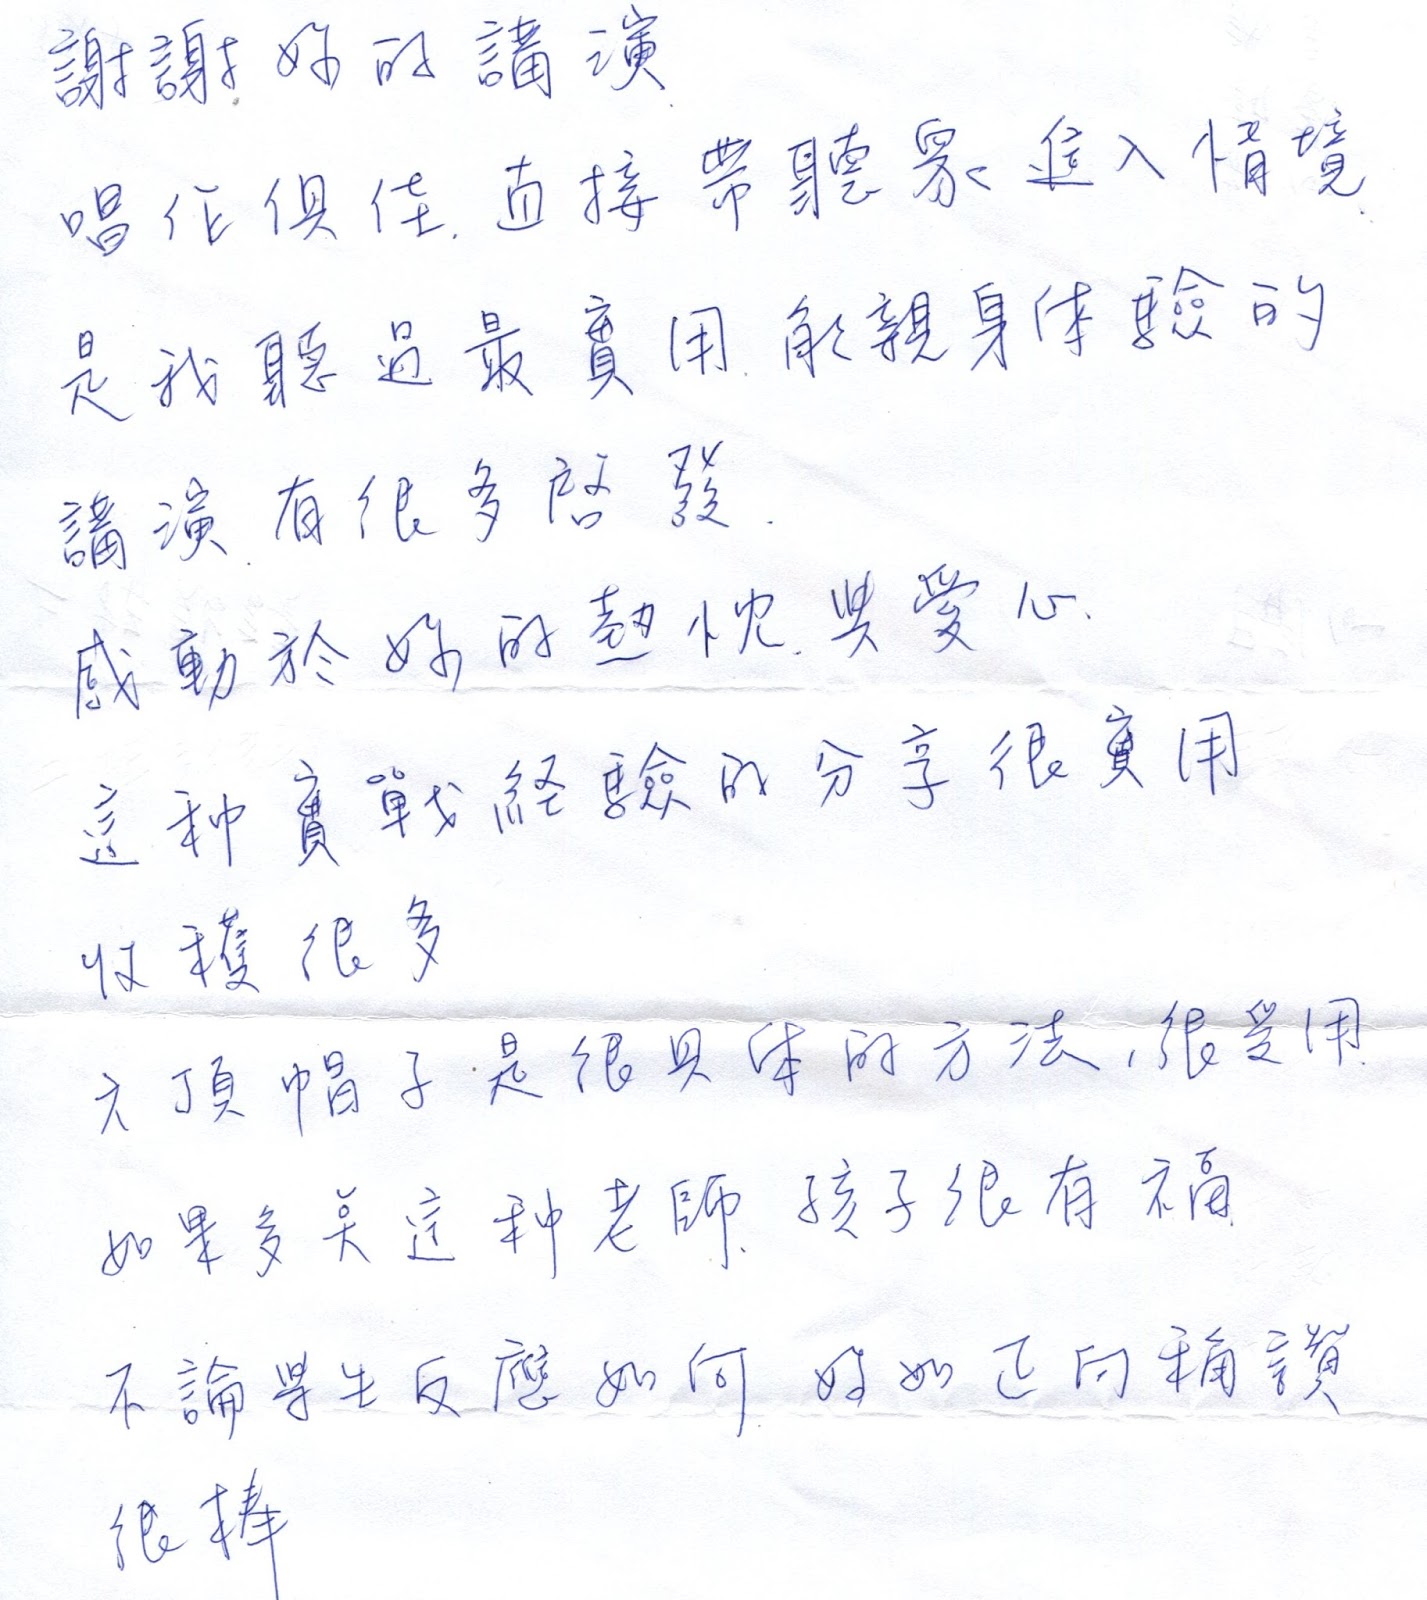 謝謝.妳的講演
唱作俱佳.直接帶聽眾進入情境.
是我聽過最實用.能親身体驗的
講演.有很多啓發.
感動於妳的熱忱.與愛心.
這种實戰経驗的分享很實用
收穫很多
六頂帽子.是很具体的方法,很受用.
如果多点這种老師.孩子很有福.
不論學生反應如何.妳如正向稱讚
很棒